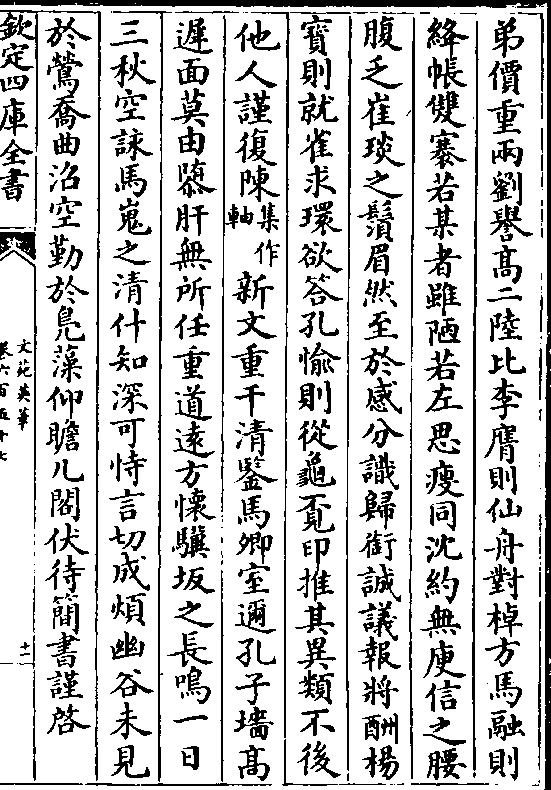 弟價重兩劉譽髙二陸比李膺則仙舟對棹方馬融則
絳帳雙褰若某者雖陋若左思瘦同沈約無庾信之腰
腹乏崔琰之鬚眉然至於感分識歸銜誠議報將酬楊
寳則就雀求環欲答孔愉則從龜覔印推其異類不後
他人謹復陳集作軸新文重干清鑒馬卿室邇孔子墻髙
遲面莫由隳肝無所任重道逺方懐驥坂之長鳴一日
三秋空詠馬嵬之清什知深可恃言切成煩幽谷未見
於鶯喬曲沼空勤於鳬藻仰瞻几閣伏待簡書謹啓
欽定四庫全書
文苑英華
卷六百五十七
十一